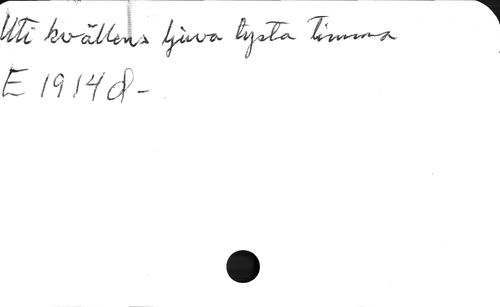 Uti kvällens ljuva tysta timma
E 1914 d-